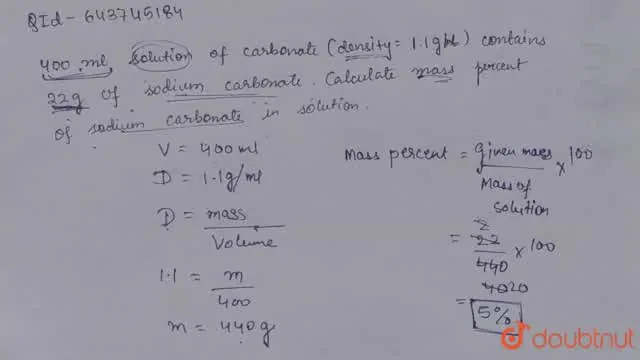 QId - 643745184
400 ml, solution of carbonate (density = 1.1g/ml) contains
22g of sodium carbonate. Calculate mass percent
of sodium carbonate in solution.
V = 400 ml
D = 1.1g/ml
D = mass
Volume
1.1 = m
400
m = 440g
Mass percent = given mass × 100
Mass of
solution
2
= 22 × 100
440
40 20
= 5%
doubtnut